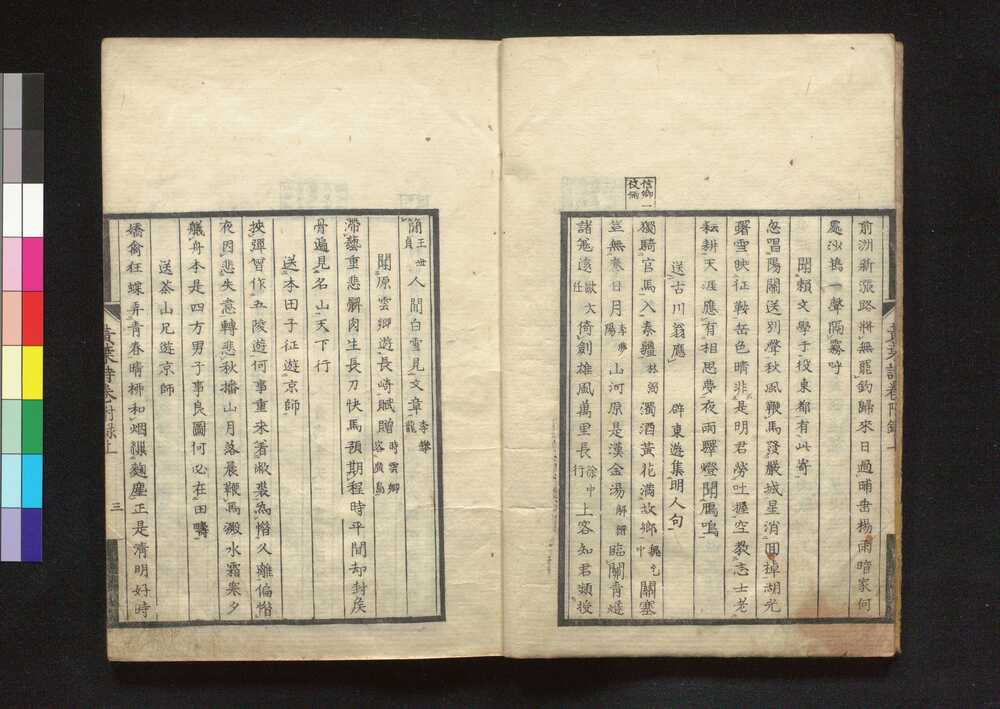 信卿一
前洲新漲路將無罷釣歸來日過晡岳楊雨暗家何
處沙塢一聲隔霧呼
聞賴文學于役東都有此寄
忽唱陽關送別聲秋風鞭馬發嚴城星消洄掉胡光
曙雪映征鞍岳色晴非是明君勞吐握空教志士老
耘耕天涯應有相思夢夜雨驛燈聞鴈鳴
送古川翁應辟東遊集明人句
獨騎官馬入秦疆林弼濁酒黃花滿故鄉關塞
豈無秦日月山河原是漢金湯解縉臨關青
諸遠大倚劍雄風萬里長徐中行上客知君頻授
簡王世貞人間白雪見文章李攀龍
聞原雲卿遊長崎賦贈時雲卿客廣島
滯藝重悲髀肉生長刀快馬預期程時平間却封侯
骨遍見名山天下行
送本田子征遊京師
挾彈習作五陵遊何事重來著敝裘為惜久離偏惜
夜因悲失意轉悲秋播山月落晨鞭馬澱水霜寒夕
艤舟本是四方男子事良圖何必在田疇
送茶山兄遊京師
嬌禽狂蝶弄青春晴柳和烟韞麴塵正是清明好時
黃葉詩卷附錄上
三